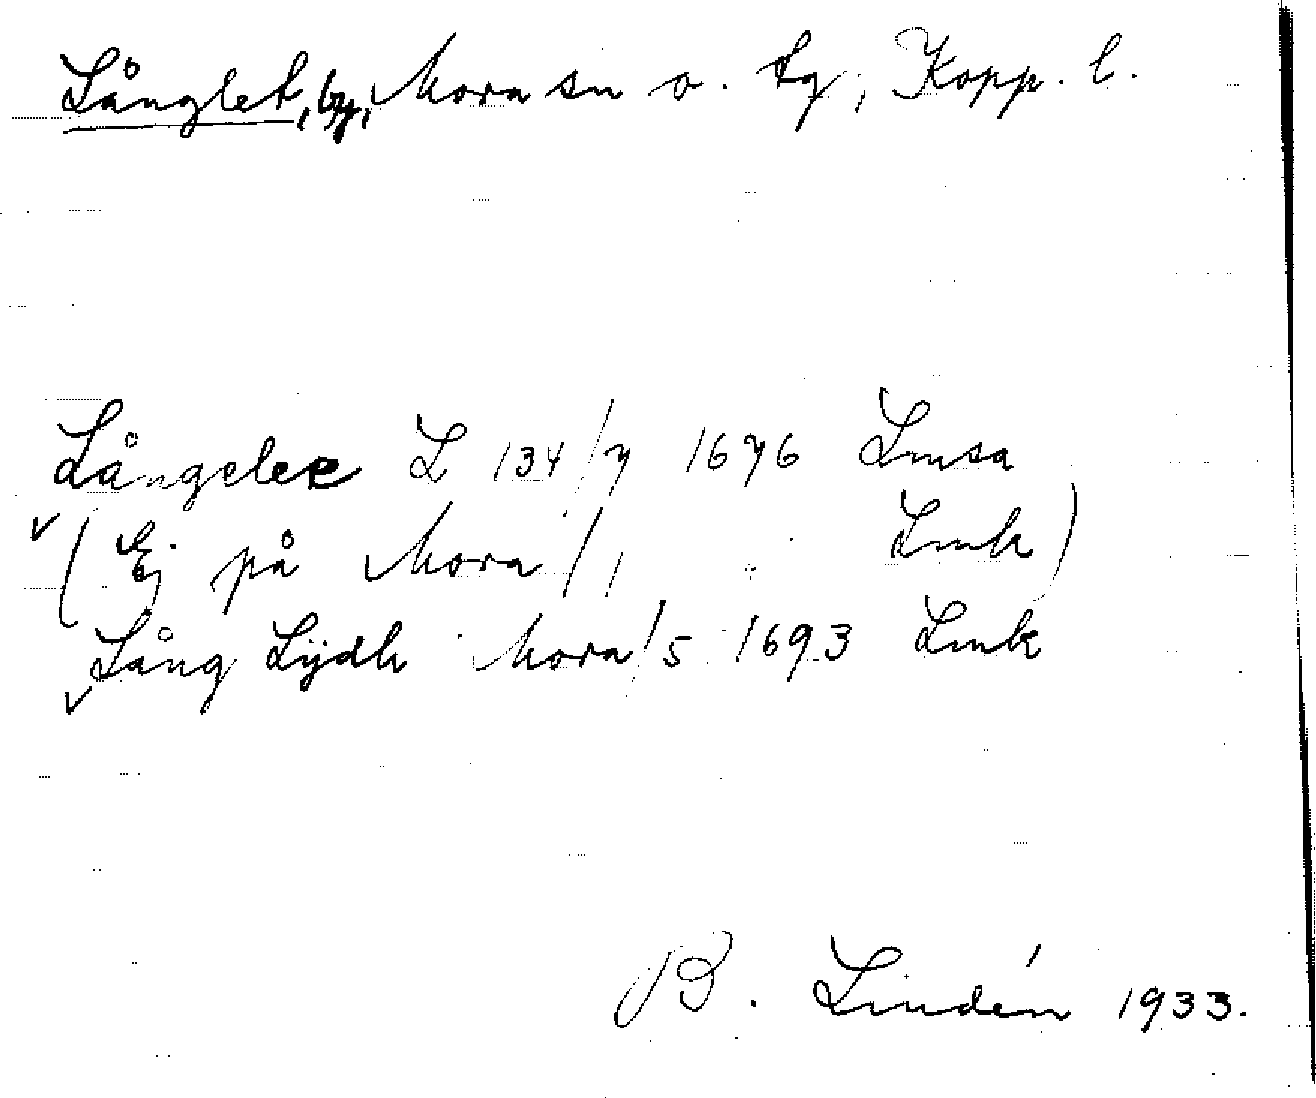 Långlet, by, Mora sn o. tg, Kopp. l.
Långelee L 134/7 1676 Lmsa
(Ej på Mora/1 Lmk)
Lång Lijdh Mora/5 1693 Lmk
B. Lindén 1933.